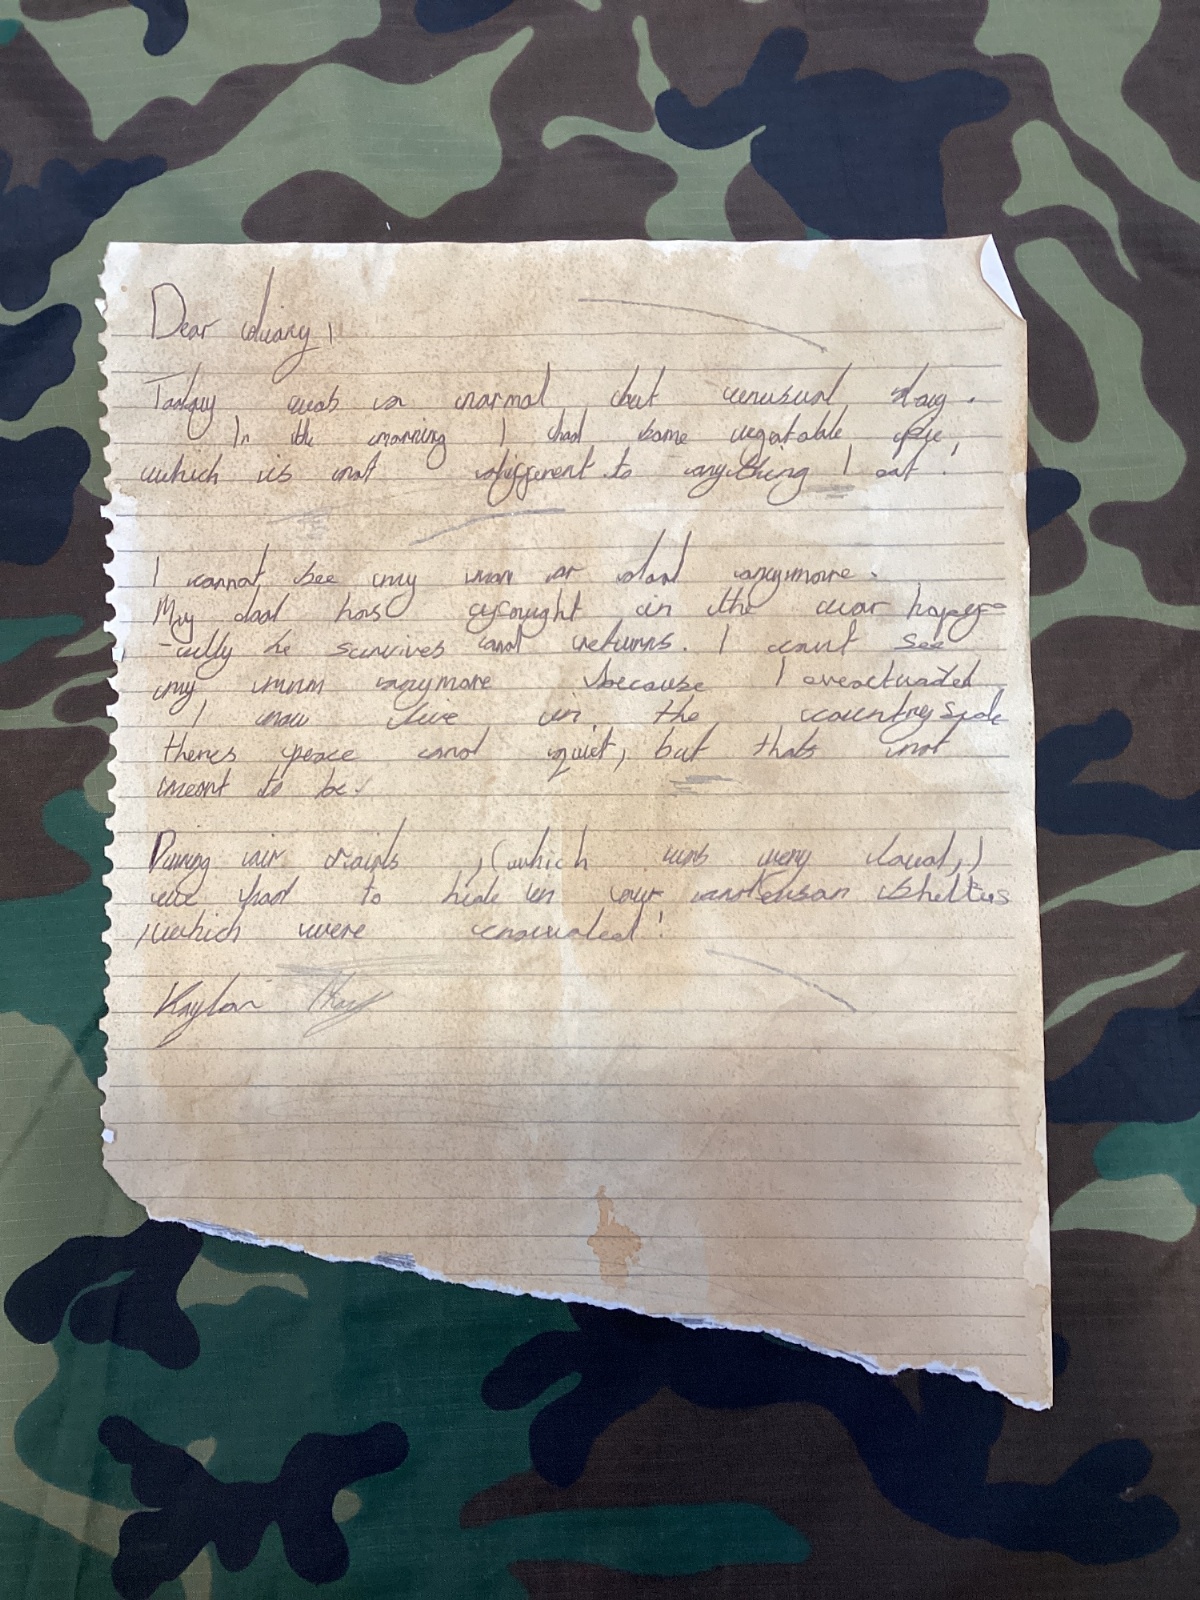 Dear diary,
Today was a normal but unusual day.
In the morning I had some vegetable pie,
which is not different to anything I eat!
I cannot see my mum or dad anymore.
My dad has fought in the war hopef-
-ully he survives and returns. I cant see
my mum anymore because I evacuated
I now live in the countryside
theres peace and quiet, but thats not
meant to be.
During air raids, (which was very loud,)
we had to hide in our anderson shelters
,which were crowded!
Kaylan